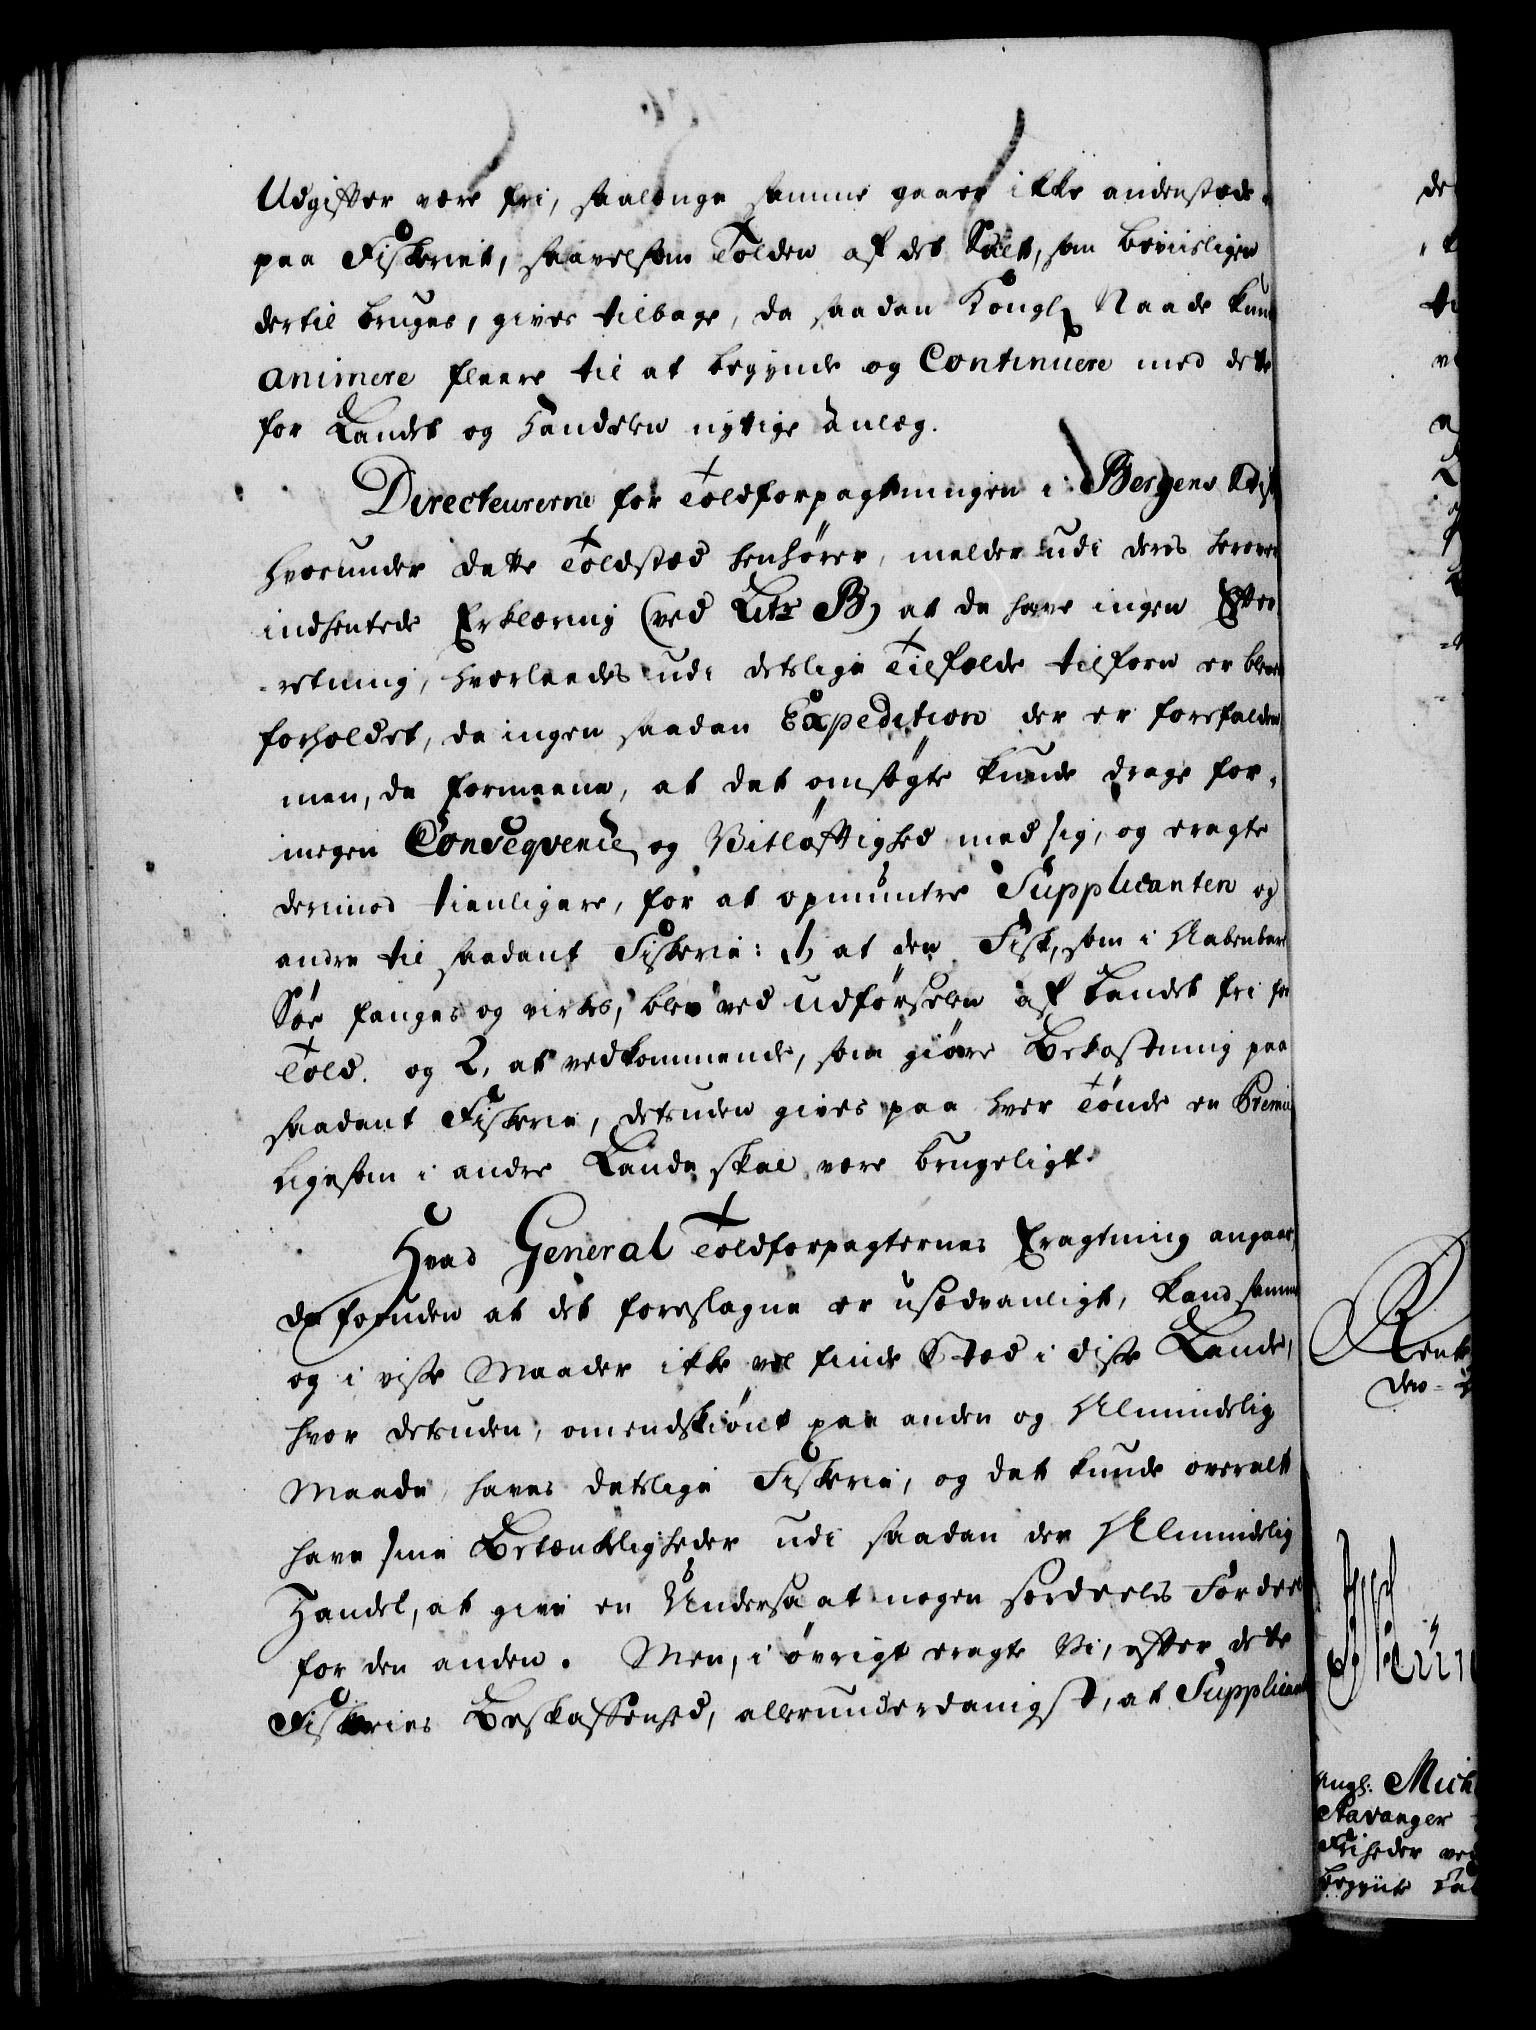 Udgifter være fri, saalenge samme gaaer ikke andenstæds
paa Fiskeriet, saavelsom Tolden af det Salt, som beviisligen
dertil bruges, gives tilbage, da saadan Kongl. Naade kunde
animere fleere til at begynde og Continuere med dette
for Landet og Handelen nyttige Anlæg.
Directeurerne for Toldforpagtningen i Bergens Stift
hvorunder dette Toldsted henhører, melder udi deres herover
indhentede Erklæring (ved Litr B) at de have ingen Efter-
-retning, hvorleedes udi deslige Tilfælde tilforn er bleven
forholdet, da ingen saadan Expedition der er forefalden
men, de formeene, at det omsøgte kunde drage for-
megen Conseqvence og Vitløftighed med sig, og eragte
derimod tienligere, for at opmuntre Supplicanten og
andre til saadant Fiskerie: 1, at den Fisk, som i Aabenbare
Søe fanges og virkes, blev ved udførselen af Landet fri for
Told. og 2, at vedkommende, som giøre Bekostning paa
saadant Fiskerie, desuden gives paa hver Tønde en Premie
ligesom i andre Lande skal være brugeligt.
Hvad General Toldforpagternes Eragtning angaaer,
da foruden at det foreslagne er usædvanligt, kand samme
og i visse Maader ikke vel finde Sted i disse Lande,
hvor desuden, omendskiønt paa anden og Almindelig
Maade, haves deslige Fiskerie, og det kunde overalt
have sine Betænkeligheder udi saadan der Almindelig
Handel, at give en Undersaat nogen særdeeles Fordeel
for den anden. Men, i øvrigt eragte Vi, efter dette
Fiskeries Beskaffenhed, allerunderdanigst, at Supplicant
Angl. Mich
Stavanger
Friheder ved